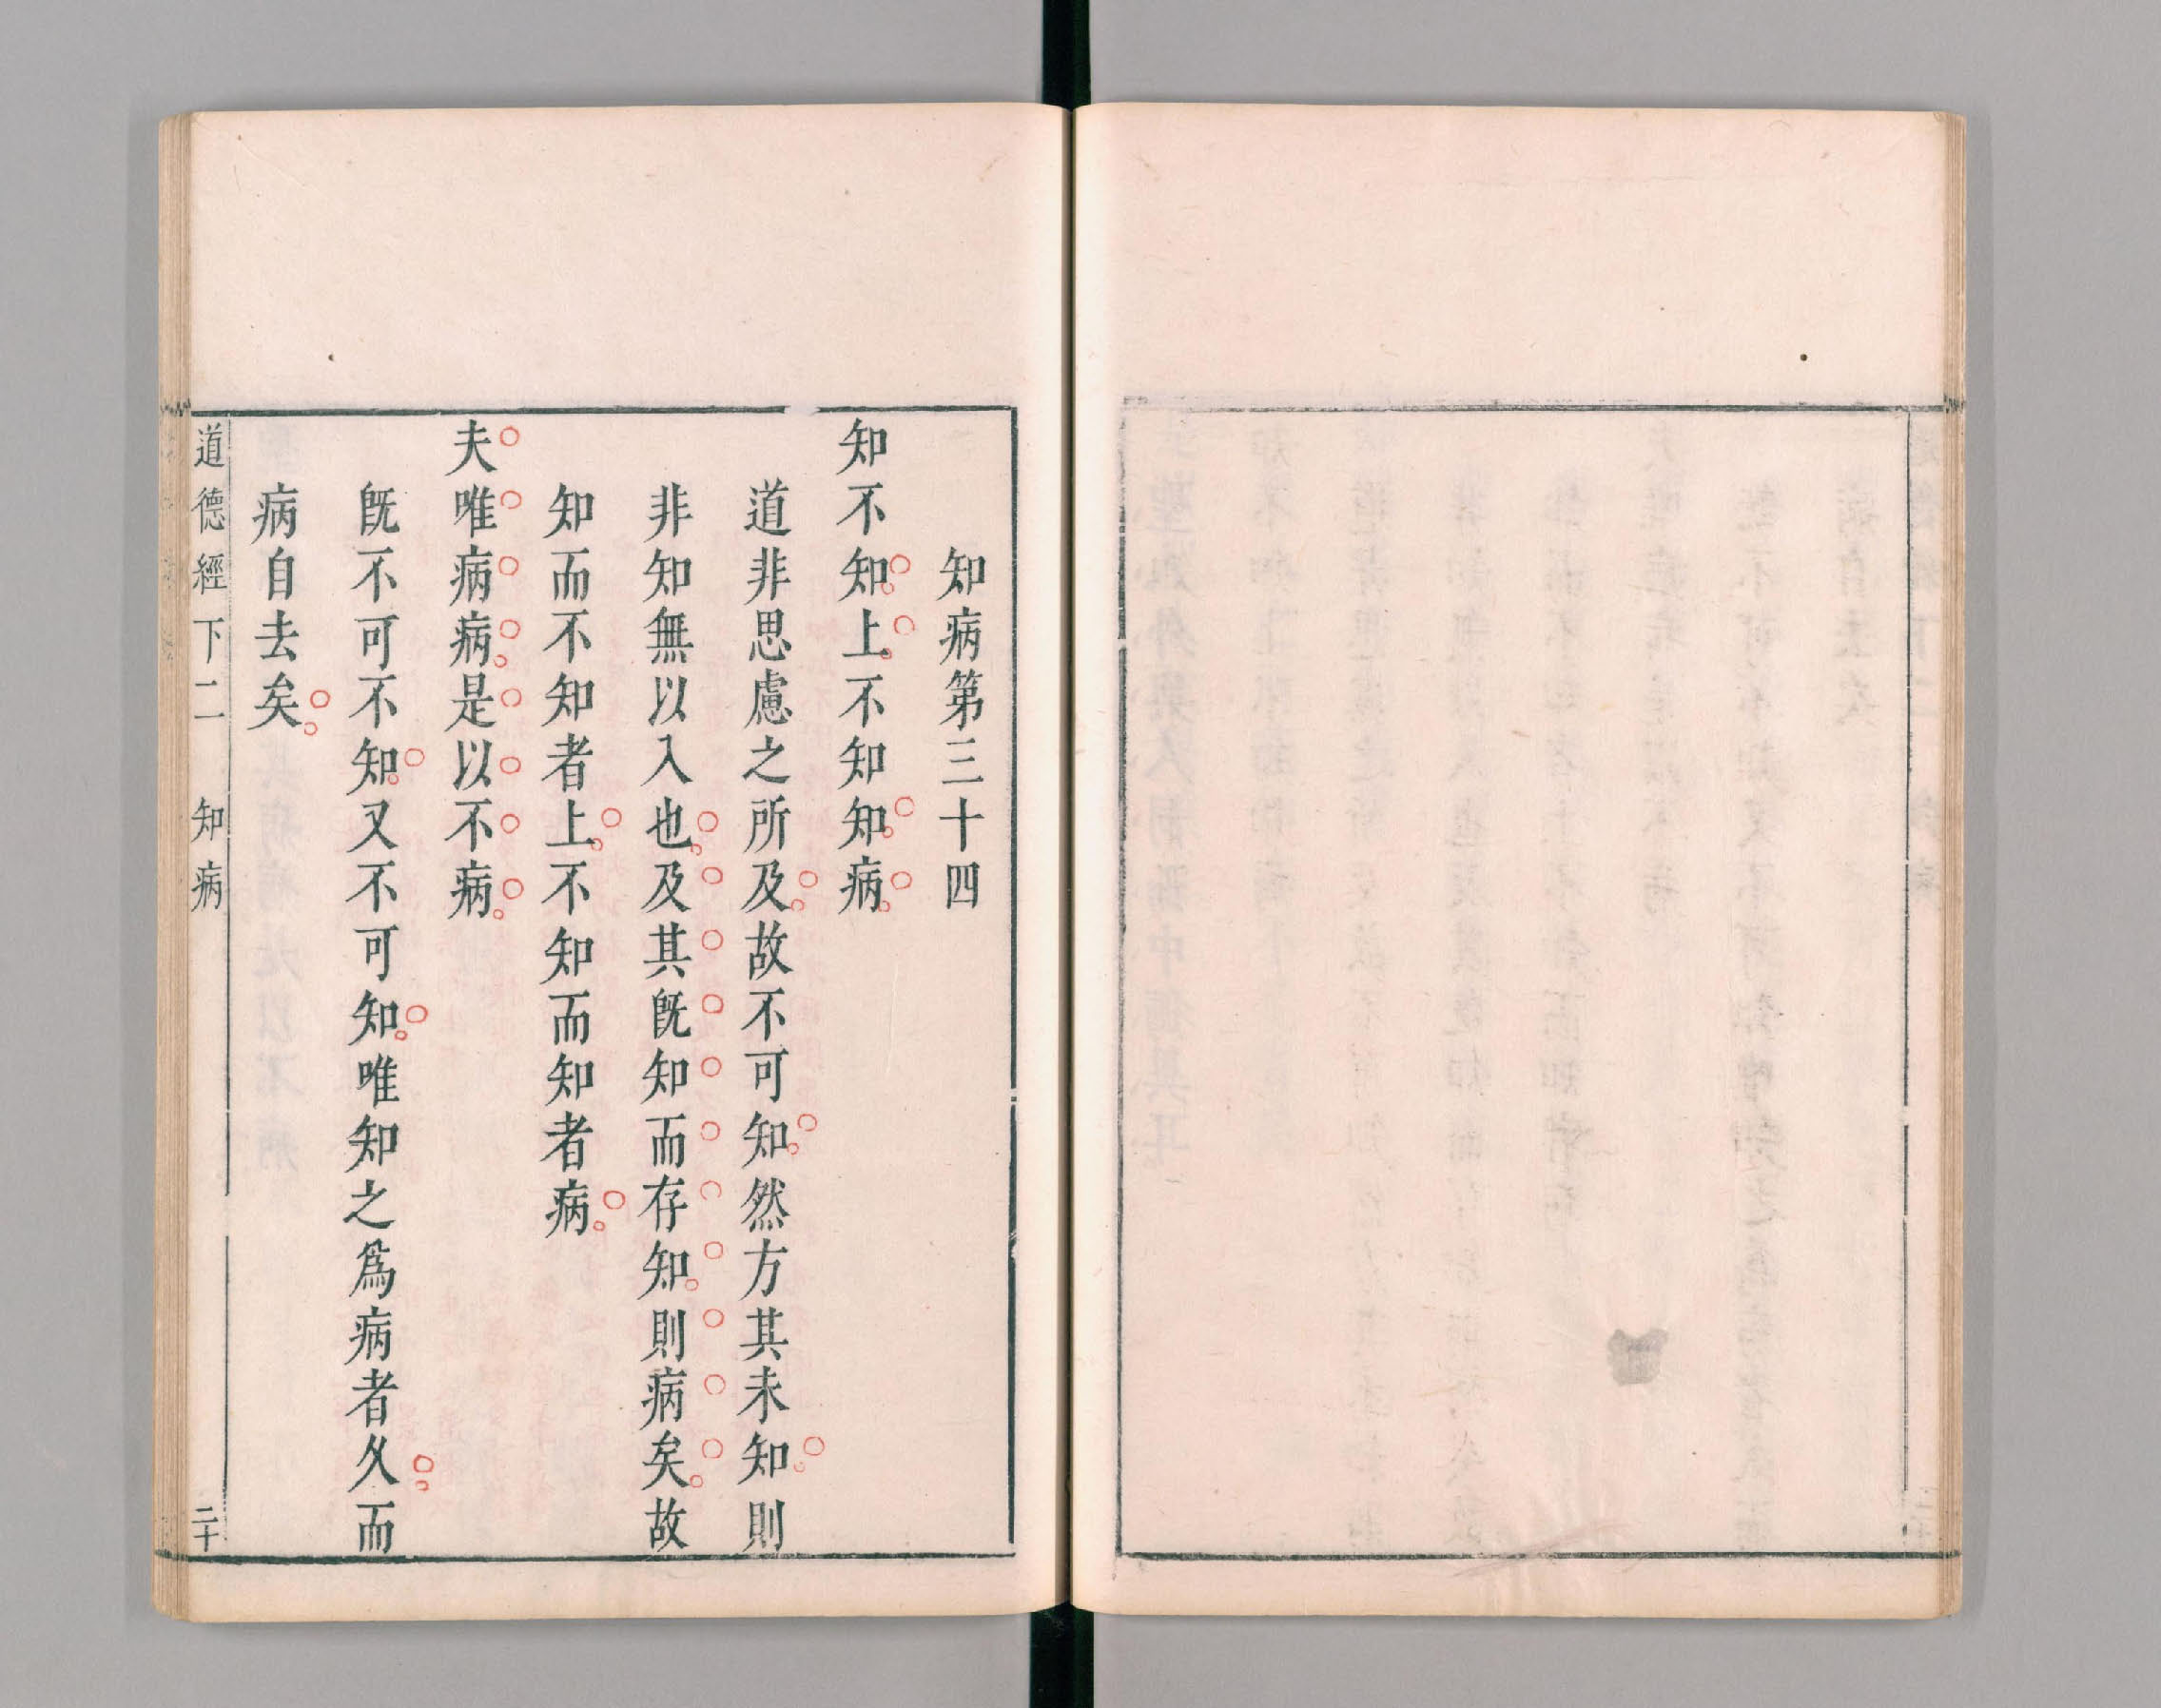 知病第三十四
知不知上不知知病
道非思慮之所及故不可知然方其未知則
非知無以入也及其旣知而存知則病矣故
知而不知者上不知而知者病
夫唯病病是以不病
旣不可不知又不可知唯知之爲病者久而
病自去矣
道德經下二 知病 二十